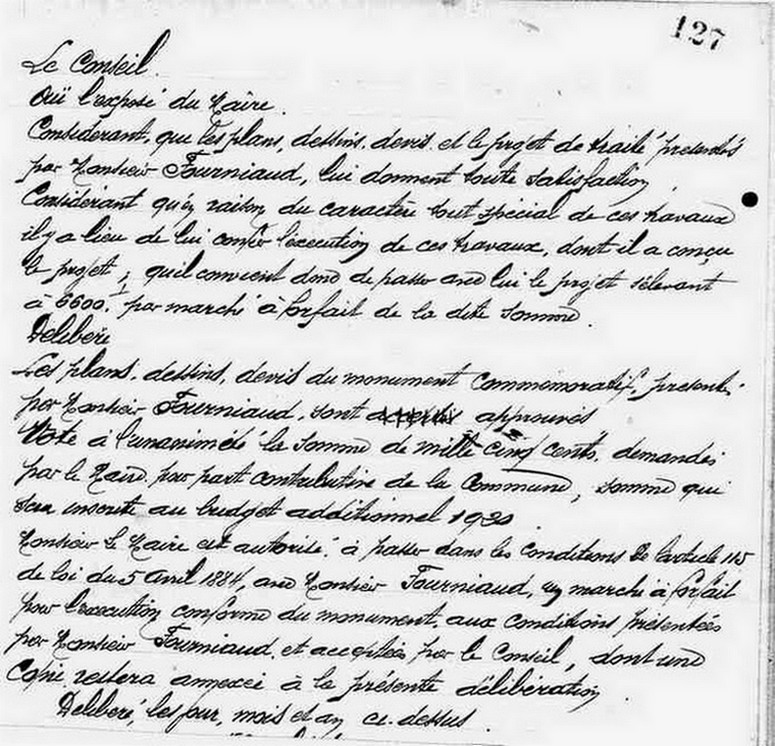 127
Le Conseil.
Ouï l'exposé du Maire.
Considérant, que les plans, dessins, devis, et le projet de traité présentés
par Monsieur Fourniaud, lui donnent toute satisfaction,
Considérant qu'en raison du caractère tout spécial de ces travaux
il y a lieu de lui confier l'exécution de ces travaux, dont il a conçu
le projet; qu'il convient donc de passer avec lui le projet s'élevant
à 6600.f par marché à forfait de la dite somme.
Délibère
Les plans, dessins, devis du monument commémoratif, présentés
par Monsieur Fourniaud, sont approuvés
Vote à l'unanimité la somme de mille cinq cents, demandée
par le Maire, pour part contributive de la Commune, somme qui
sera inscrite au budget additionnel 1920
Monsieur le Maire est autorisé, à passer dans les conditions de l'article 115
de loi du 5 Avril 1884, avec Monsieur Fourniaud, un marché à forfait
pour l'exécution conforme du monument, aux conditions présentées
par Monsieur Fourniaud, et acceptées par le Conseil, dont une
Copie restera annexée à la présente délibération,
Délibéré, les jour, mois et an ci-dessus.